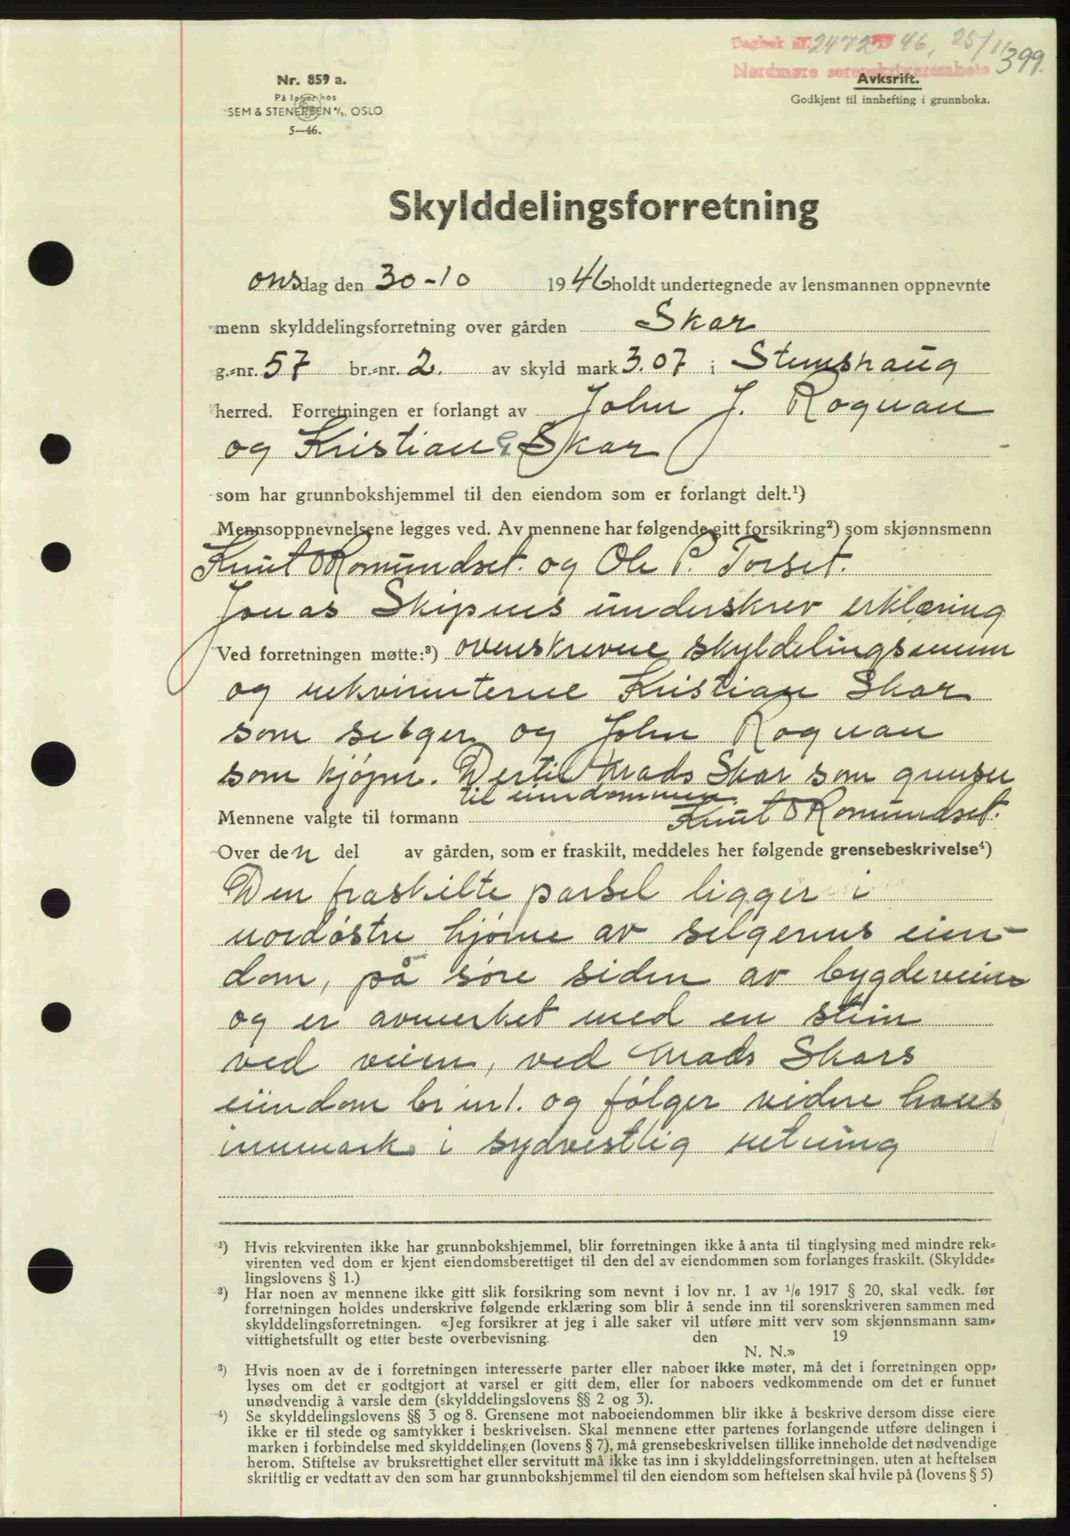 Dagbok nr. 2472 1946, 25/11
Nordmøre sorenskriverembete
399.
Nr. 859 a.
På lager hos
SEM & STENERSEN A/S, OSLO
5—46.
Avksrift.
Godkjent til innhefting i grunnboka.
Skylddelingsforretning
onsdag den 30-10 1946 holdt undertegnede av lensmannen oppnevnte
menn skylddelingsforretning over gården Skar
g.-nr. 57 br.-nr. 2. av skyld mark 3.07 i Stemshaug
herred. Forretningen er forlangt av John J. Rognan
og Kristian G. Skar
som har grunnbokshjemmel til den eiendom som er forlangt delt.¹)
Mennsoppnevnelsene legges ved. Av mennene har følgende gitt forsikring²) som skjønnsmenn
Knut O Romundset. og Ole P. Torset.
Jonas Skipnes underskrev erklæring
Ved forretningen møtte:³) ovenskrevne skyldelingsmenn
og rekvirenterne Kristian Skar
som selger og John Rognan
som kjøper. Dertil Mads Skar som grenser
til eiendommen.
Mennene valgte til formann Knut O Romundset.
Over den del av gården, som er fraskilt, meddeles her følgende grensebeskrivelse⁴)
Den fraskilte parsel ligger i
nordøstre hjørne av selgerens eien-
dom, på søre siden av bygdeveien
og er avmerket med en stein
ved veien, ved Mads Skars
eiendom br.nr 1. og følger videre hans
innmark i sydvestlig retning
¹) Hvis rekvirenten ikke har grunnbokshjemmel, blir forretningen ikke å anta til tinglysing med mindre rek-
virenten ved dom er kjent eiendomsberettiget til den del av eiendommen som forlanges fraskilt. (Skyldde-
lingslovens § 1.)
²) Har noen av mennene ikke gitt slik forsikring som nevnt i lov nr. 1 av 1/6 1917 § 20, skal vedk. før
forretningen holdes underskrive følgende erklæring som blir å sende inn til sorenskriveren sammen med
skylddelingsforretningen. «Jeg forsikrer at jeg i alle saker vil utføre mitt verv som skjønnsmann sam-
vittighetsfullt og etter beste overbevisning. den 19
N. N.»
³) Hvis noen av de i forretningen interesserte parter eller naboer ikke møter, må det i forretningen opp-
lyses om det er godtgjort at varsel er gitt dem, eller for naboers vedkommende om det er funnet
unødvendig å varsle dem (skylddelingslovens §§ 2 og 3).
⁴) Se skylddelingslovens §§ 3 og 8. Grensene mot naboeiendommen blir ikke å beskrive dersom disse eiere
ikke er til stede og samtykker i beskrivelsen. Skal mennene etter partenes forlangende utføre delingen i
marken i forbindelse med skylddelingen (lovens § 7), må grensebeskrivelsen tillike inneholde det nødvendige
herom. Stiftelse av bruksrettighet eller servitutt må ikke tas inn i skylddelingsforretningen. uten at heftelsen
skriftlig er vedtatt av den som har grunnbokshjemmel til den eiendom som heftelsen skal hvile på (lovens § 5)